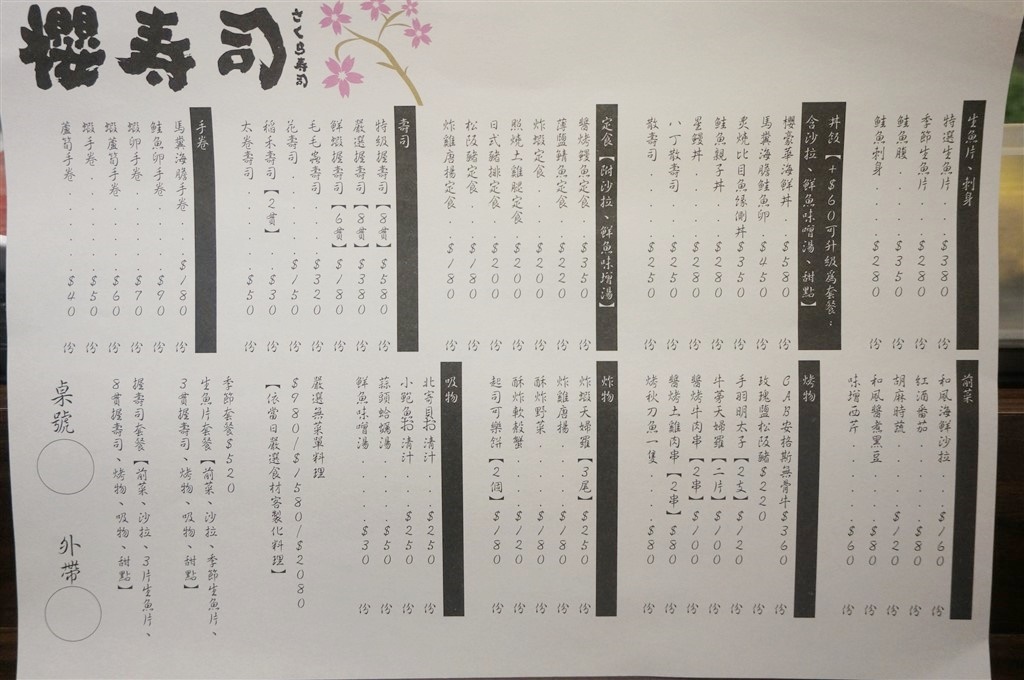 櫻壽司
さくら寿司
生魚片、刺身
特選生魚片....$380 份
季節生魚片....$280 份
鮭魚腹......$350 份
鮭魚刺身.....$280 份
丼飯【+$60可升級為套餐:
含沙拉、鮮魚味噌湯、甜點】
櫻豪華海鮮丼..$580 份
馬糞海膽鮭魚卵..$450 份
炙燒比目魚緣側丼$350 份
鮭魚親子丼...$280 份
星鰻丼.....$280 份
八丁散壽司...$250 份
散壽司.....$250 份
定食【附沙拉、鮮魚味增湯】
醬烤鰻魚定食..$350 份
薄鹽鯖魚定食..$220 份
炸蝦定食....$200 份
照燒土雞腿定食.$200 份
日式豬排定食..$200 份
松阪豬定食...$180 份
炸雞唐揚定食..$180 份
壽司
特級握壽司【8貫】$580 份
嚴選握壽司【8貫】$380 份
鮮蝦握壽司【6貫】$180 份
毛毛蟲壽司...$320 份
花壽司.....$150 份
稻禾壽司【2貫】.$30 份
太卷壽司....$50 份
手卷
馬糞海膽手卷...$180 份
鮭魚卵手卷....$90 份
蝦卵手卷.....$70 份
蝦蘆筍手卷....$60 份
蝦手卷......$50 份
蘆筍手卷.....$40 份
前菜
和風海鮮沙拉...$160 份
紅酒番茄.....$80 份
胡麻時蔬.....$120 份
和風醬煮黑豆...$80 份
味增西芹.....$60 份
烤物
CAB安格斯無骨牛$360 份
玫瑰鹽松阪豬$220 份
手羽明太子【2支】$120 份
牛蒡天婦羅【二片】$100 份
醬烤牛肉串【2串】$100 份
醬烤土雞肉串【2串】$80 份
烤秋刀魚一隻...$80 份
炸物
炸蝦天婦羅【3尾】$250 份
炸雞唐揚....$180 份
酥炸野菜....$180 份
酥炸軟殼蟹...$120 份
起司可樂餅【2個】$180 份
吸物
北寄貝お清汁..$250 份
小鮑魚お清汁..$250 份
蒜頭蛤蠣湯...$50 份
鮮魚味噌湯...$30 份
嚴選無菜單料理
$980/$1580/$2080
【依當日嚴選食材客製化料理】
季節套餐$520
生魚片套餐【前菜、沙拉、季節生魚片、
3貫握壽司、烤物、吸物、甜點】
握壽司套餐【前菜、沙拉、3片生魚片、
8貫握壽司、烤物、吸物、甜點】
桌號
外帶